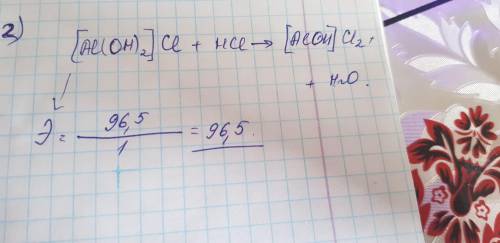 2)
[Al(OH)₂]Cl + HCl → [AlOH]Cl₂ +
+ H₂O.
Э = 96,5 / 1 = 96,5.